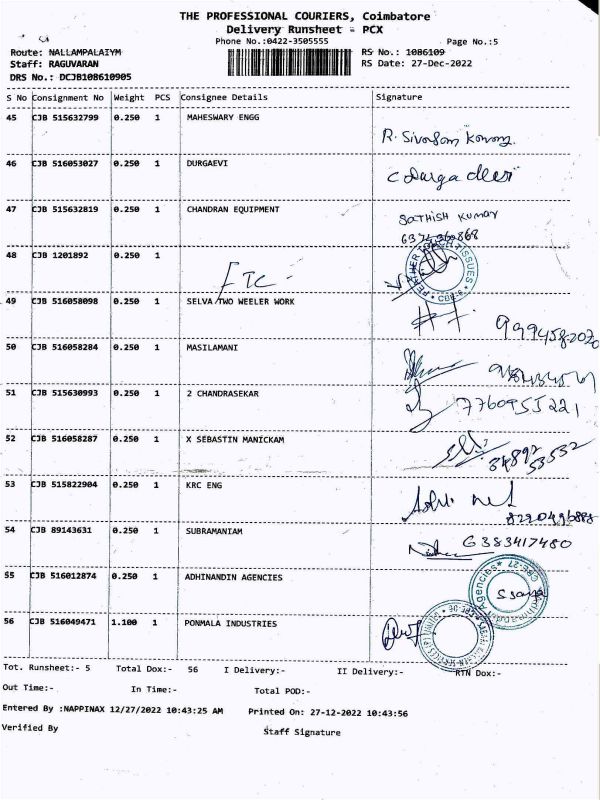 THE PROFESSIONAL COURIERS, Coimbatore
Delivery Runsheet - PCX
Phone No.:0422-3505555 Page No.:5
Route: NALLAMPALAIYM RS No.: 1086109
Staff: RAGUVARAN RS Date: 27-Dec-2022
DRS No.: DCJB108610905
S No Consignment No Weight PCS Consignee Details Signature
45 CJB 515632799 0.250 1 MAHESWARY ENGG
46 CJB 516053027 0.250 1 DURGAEVI
C Durga devi
47 CJB 515632819 0.250 1 CHANDRAN EQUIPMENT
SATHISH KUMAR
48 CJB 1201892 0.250 1
49 CJB 516058098 0.250 1 SELVA TWO WEELER WORK
50 CJB 516058284 0.250 1 MASILAMANI
51 CJB 515630993 0.250 1 2 CHANDRASEKAR
7760955221
52 CJB 516058287 0.250 1 X SEBASTIN MANICKAM
53 CJB 515822904 0.250 1 KRC ENG
54 CJB 89143631 0.250 1 SUBRAMANIAM
6383417480
55 CJB 516012874 0.250 1 ADHINANDIN AGENCIES
56 CJB 516049471 1.100 1 PONMALA INDUSTRIES
Tot. Runsheet:- 5 Total Dox:- 56 I Delivery:- II Delivery:- RTN Dox:-
Out Time:- In Time:- Total POD:-
Entered By :NAPPINAX 12/27/2022 10:43:25 AM Printed On: 27-12-2022 10:43:56
Verified By Staff Signature